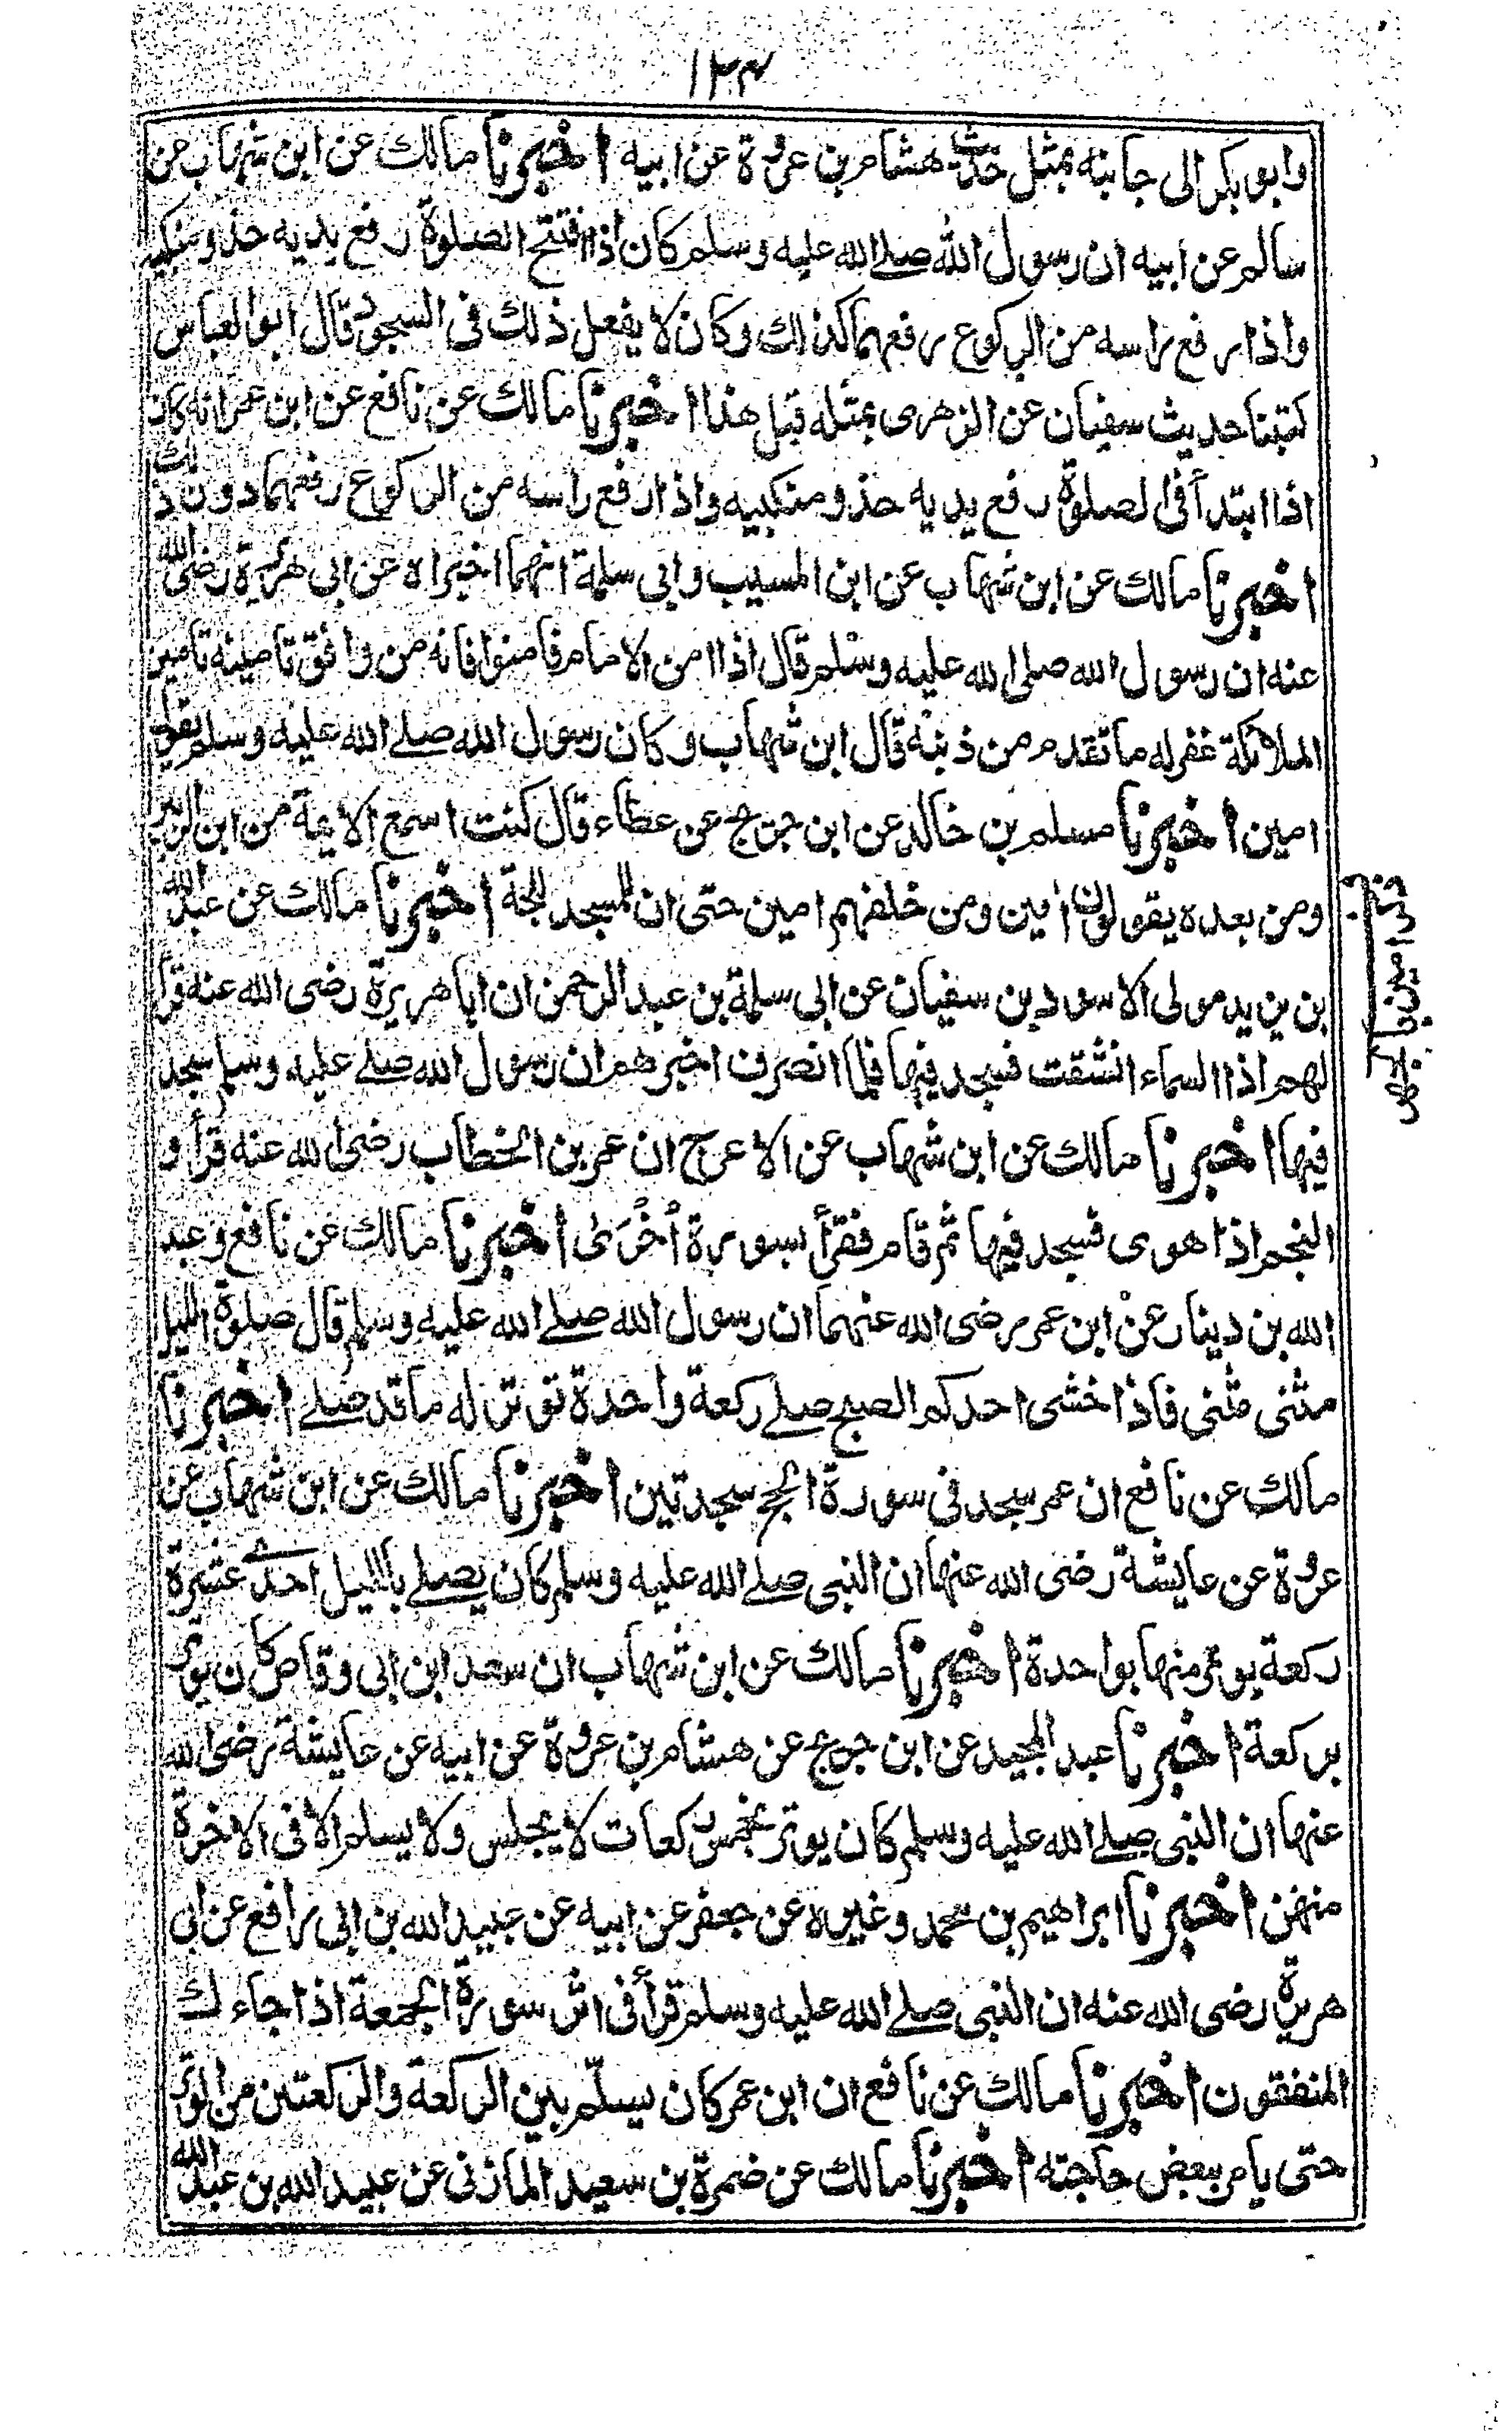 ١٢٤
وابو بكر الى جانبه بمثل حديث هشام بن عروة عن ابيه اخبرنا مالك عن ابن شهاب عن
سالم عن ابيه ان رسول الله صلے الله عليه وسلم كان اذا افتتح الصلوة رفع يديه حذو منكبيه
واذا رفع راسه من الركوع رفعهما كذلك وكان لا يفعل ذلك فى السجود قال ابو العباس
كتبنا حديث سفيان عن الزهرى بمثله قبل هذا اخبرنا مالك عن نافع عن ابن عمر انه كان
اذا ابتدأ فى الصلوة رفع يديه حذو منكبيه واذا رفع راسه من الركوع رفعهما دون ذلك
اخبرنا مالك عن ابن شهاب عن ابن المسيب وابى سلمة انهما اخبراه عن ابى هريرة رضى الله
عنه ان رسول الله صلى الله عليه وسلم قال اذا امن الامام فامنوا فانه من وافق تامينه تامين
الملائكة غفر له ما تقدم من ذنبه قال ابن شهاب وكان رسول الله صلے الله عليه وسلم يقول
امين اخبرنا مسلم بن خالد عن ابن جريج عن عطاء قال كنت اسمع الايمة من ابن الزبير
ومن بعده يقولون امين ومن خلفهم امين حتى ان للمسجد للجة اخبرنا مالك عن عبد الله
بن يزيد مولى الاسود بن سفيان عن ابى سلمة بن عبد الرحمن ان ابا هريرة رضى الله عنه قرأ
لهم اذا السماء انشقت فسجد فيها فلما انصرف اخبرهم ان رسول الله صلے عليه وسلم سجد
فيها اخبرنا مالك عن ابن شهاب عن الاعرج ان عمر بن الخطاب رضى الله عنه قرأ و
النجم اذا هوى فسجد فيها ثم قام فقرأ بسورة أُخرى اخبرنا مالك عن نافع وعبد
الله بن دينار عن ابن عمر رضى الله عنهما ان رسول الله صلے الله عليه وسلم قال صلوة الليل
مثنى مثنى فاذا خشى احدكم الصبح صلے ركعة واحدة توتر له ما قد صلے اخبرنا
مالك عن نافع ان عمر سجد فى سورة الحج سجدتين اخبرنا مالك عن ابن شهاب عن
عروة عن عايشة رضى الله عنها ان النبى صلے الله عليه وسلم كان يصلے بالليل احدے عشرة
ركعة يوتر منها بواحدة اخبرنا مالك عن ابن شهاب ان سعد ابن ابى وقاص كان يوتر
بركعة اخبرنا عبد المجيد عن ابن جريج عن هشام بن عروة عن ابيه عن عايشة رضى الله
عنها ان النبى صلے الله عليه وسلم كان يوتر بخمس ركعات لا يجلس ولا يسلم الا فى الاخرة
منهن اخبرنا ابراهيم بن محمد وغيره عن جعفر عن ابيه عن عبيد الله بن ابى رافع عن ابى
هريرة رضى الله عنه ان النبى صلے الله عليه وسلم قرأ فى اثر سورة الجمعة اذا جاءك
المنفقون اخبرنا مالك عن نافع ان ابن عمر كان يسلّم بين الركعة والركعتين من الوتر
حتى يامر ببعض حاجته اخبرنا مالك عن ضمرة بن سعيد المازنى عن عبيد الله بن عبد الله
امين بالجهر